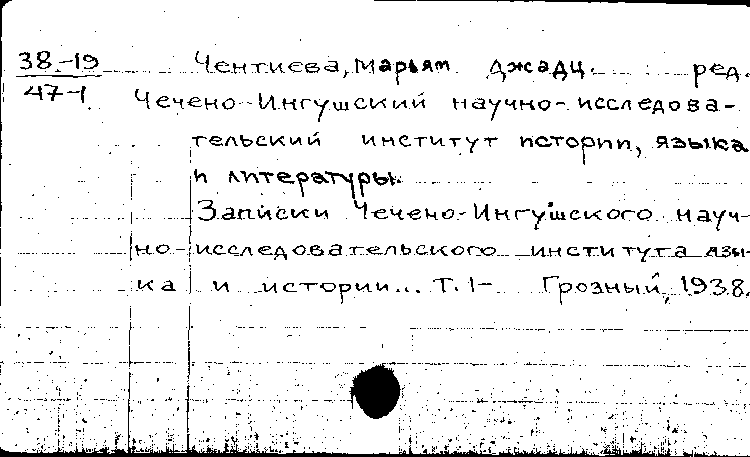 38-19 Чентиева, Марьям Джадц. ред.
47-1 Чечено-Ингушский научно-исследова-
тельский институт истории, языка
и литературы.
Записки Чечено-Ингушского науч-
но-исследовательского института язы-
ка и истории... Т. 1- Грозный, 1938.